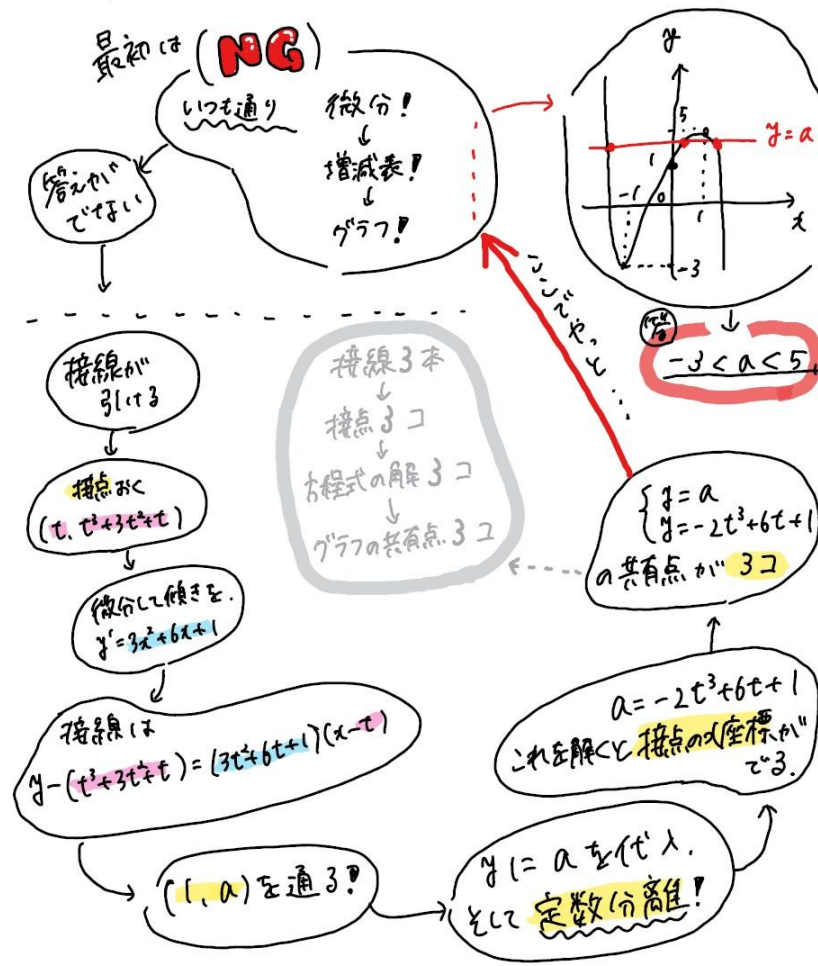 最初は (NG)
いつも通り
微分!
↓
増減表!
↓
グラフ!
答えが
でない
y
5
y=a
1
-1
0
1
x
-3
答
-3<a<5
ここでやっと…
接線が
引ける
接点おく
(t, t³+3t²+t)
微分して傾きを.
y'=3x²+6x+1
接線は
y-(t³+3t²+t)=(3t²+6t+1)(x-t)
(1, a)を通る!
yにaを代入.
そして定数分離!
a=-2t³+6t+1
これを解くと接点のx座標が
でる.
{y=a
y=-2t³+6t+1
の共有点が3コ
接線3本
↓
接点3コ
↓
方程式の解3コ
↓
グラフの共有点3コ